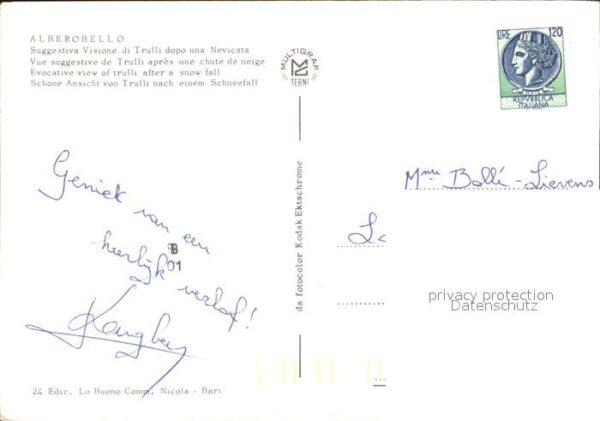 ALBEROBELLO
Suggestiva Visione di Trulli dopo una Nevicata
Vue suggestive de Trulli après une chute de neige
Evocative view of trulli after a snow fall
Schone Ansicht von Trulli nach einem Schneefall
MULTIGRAF
TERNI
LIRE 120
REPVBBLICA
ITALIANA
Geniek van een
heerlijk verlof!
B
01
da fotocolor Kodak Ektachrome
Mme Bollé-Lievens
privacy protection
Datenschutz
24 Ediz. Lo Buono Comm. Nicola - Bari